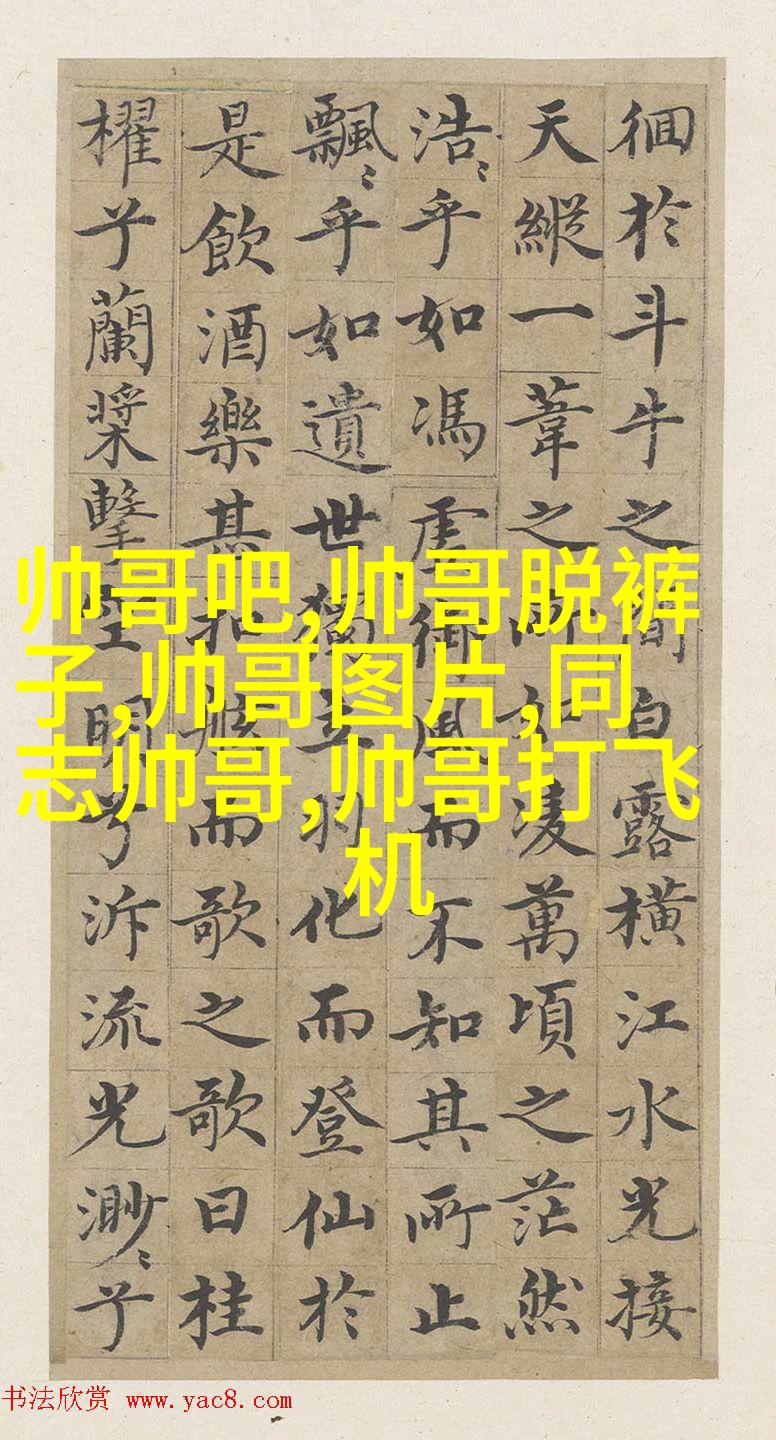 徊於斗牛之間白露橫江水光接
天縱一葦之所如凌萬頃之茫然
浩〻乎如馮虛御風而不知其所止
飄〻乎如遺世獨立羽化而登仙於
是飲酒樂甚扣舷而歌之歌曰桂
櫂兮蘭槳擊空明兮泝流光渺〻兮
帅哥吧,帅哥脱裤
子,帅哥图片,同
志帅哥,帅哥打飞
机
书法欣赏 www.yac8.com